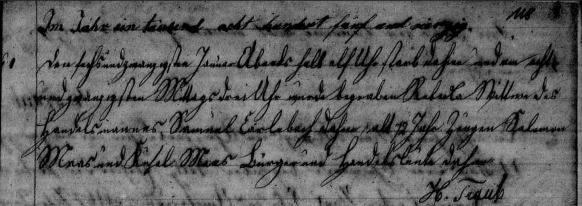 118
Im Jahr ein tausend acht hundert fünf und vierzig.
den sechsundzwanzigsten Januar Abends halb elf Uhr starb dahier und am acht
undzwanzigsten Mittags drei Uhr wurde begraben Rebekka Wittwe des
Handelsmannes Samuel Carlebach dahier, alt Jahr. Zeugen Salomon
Maas und Maas Bürger und Handelsleute dahier
H. Traub